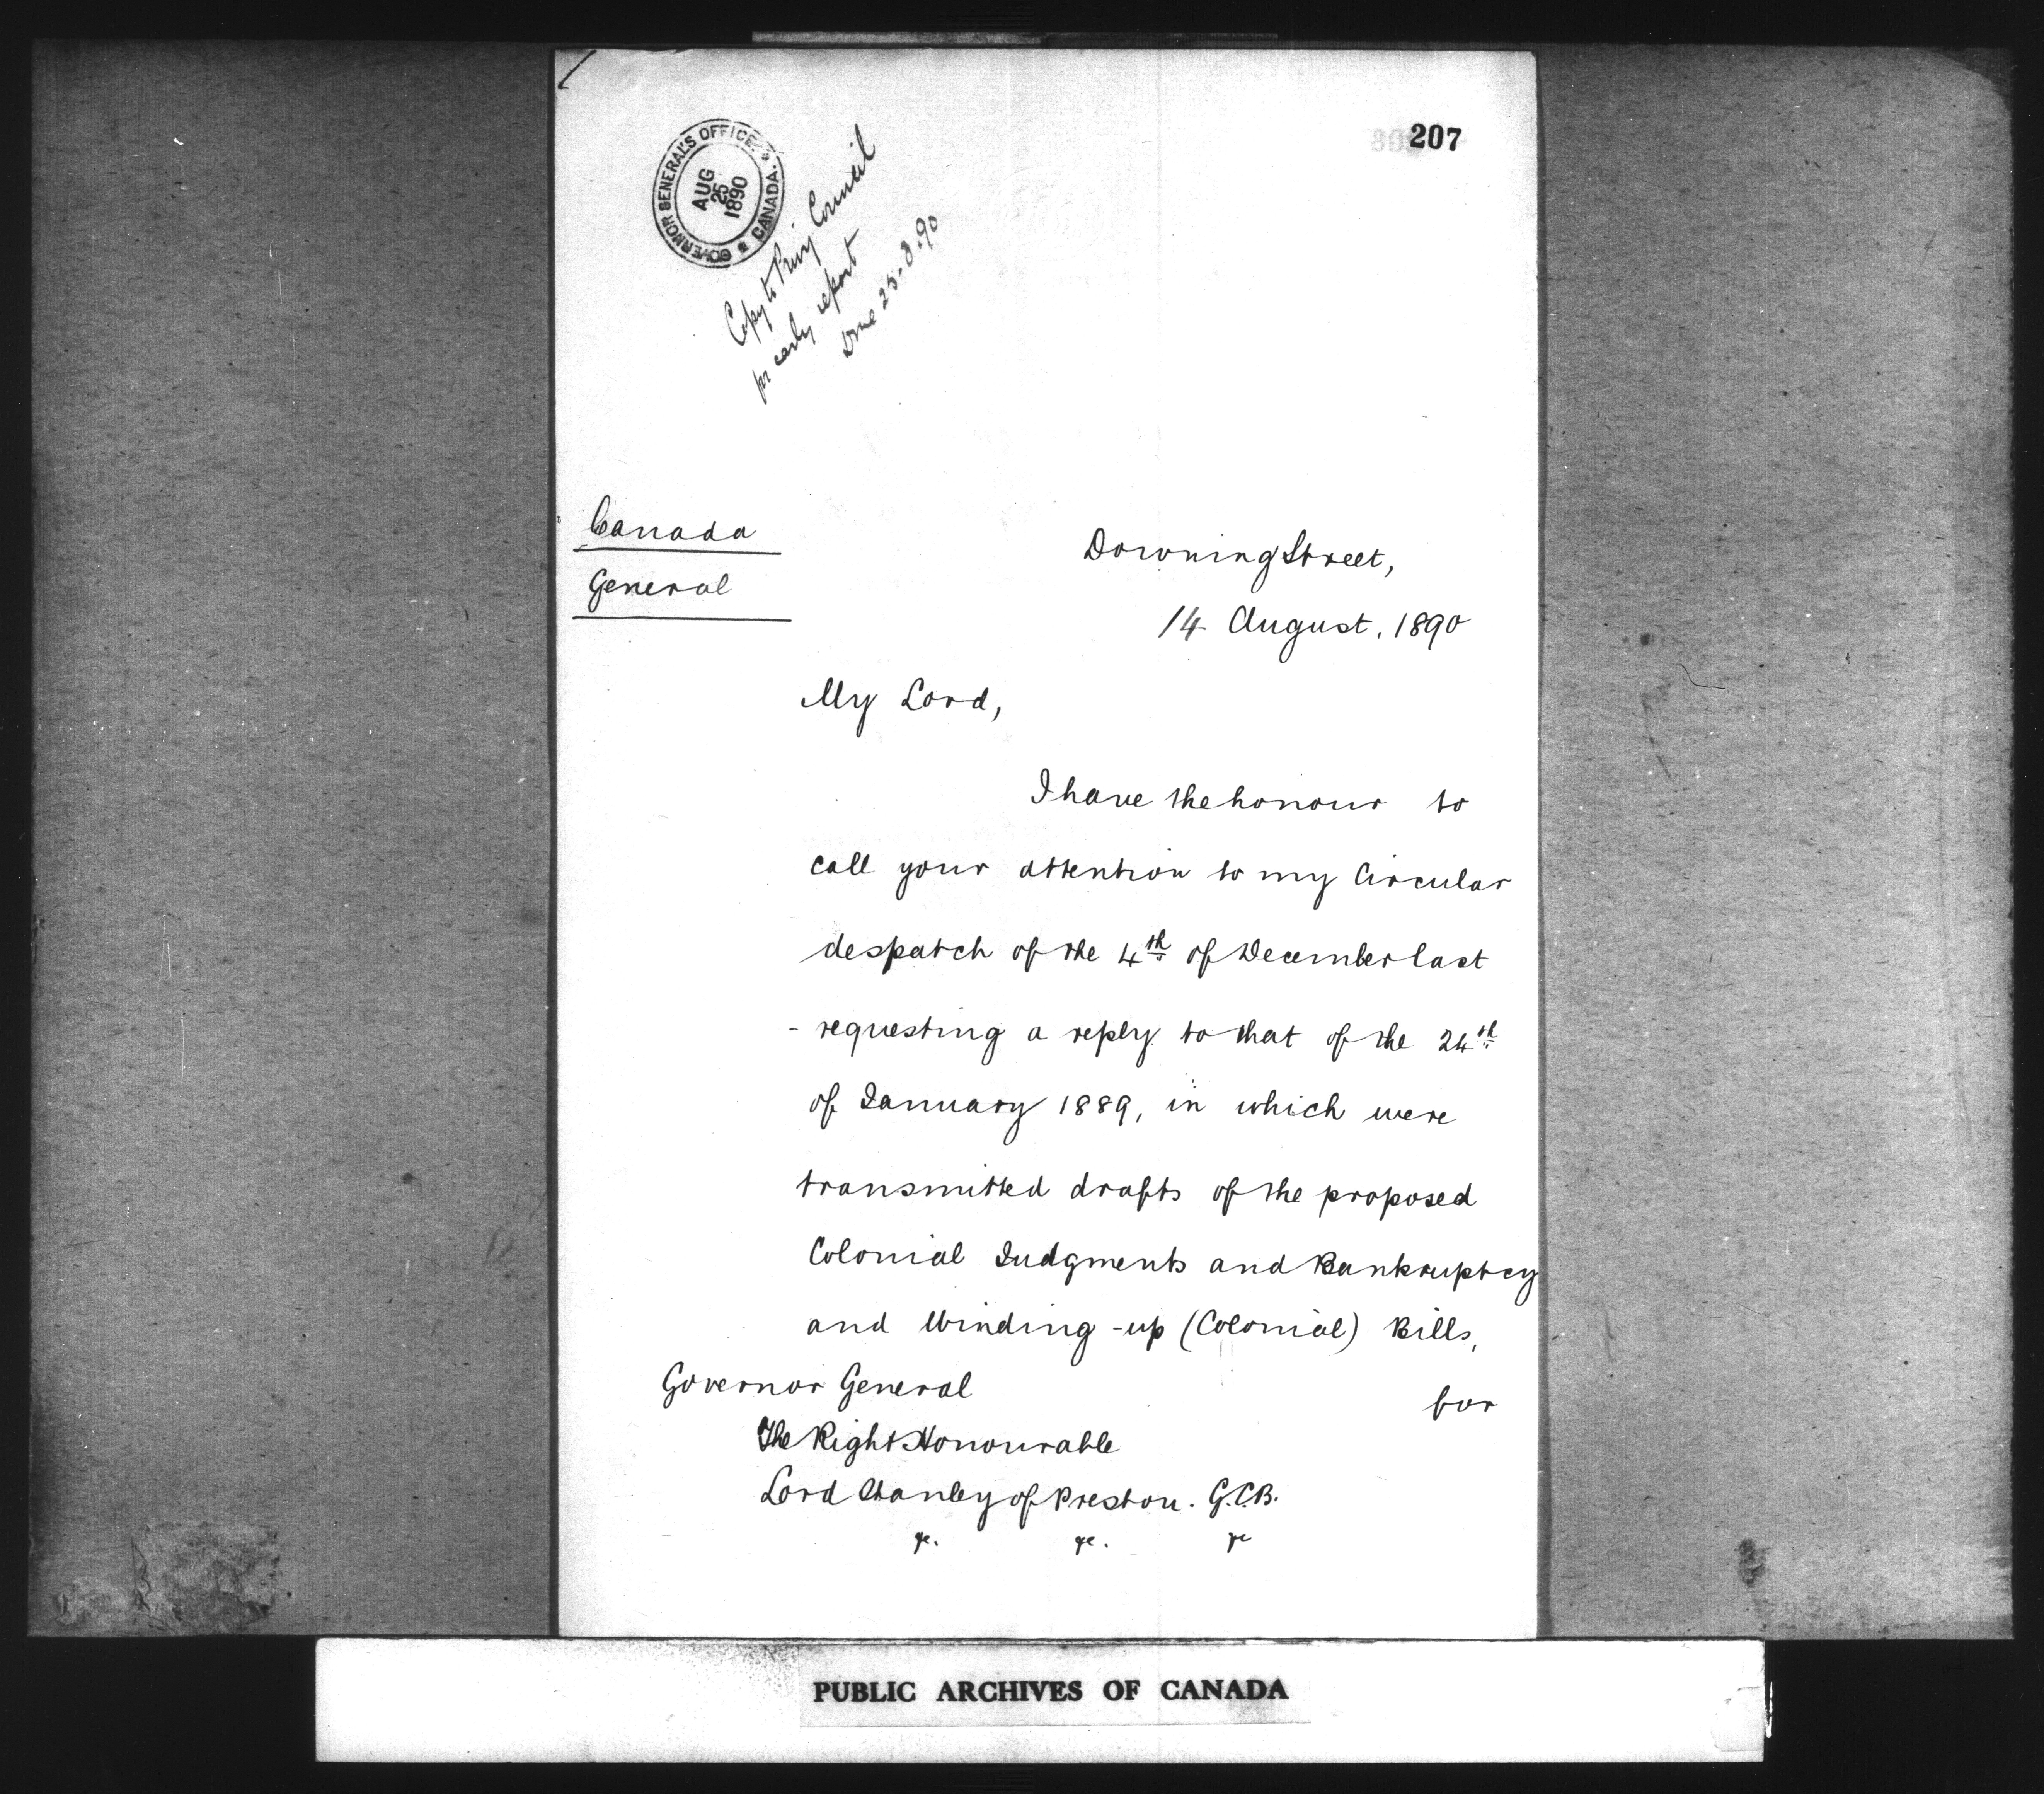 207
GOVERNOR GENERAL'S OFFICE. CANADA.
AUG
25
1890
Copy to Privy Council
for early report
Done 25.8.90
Canada
General
Downing Street,
14 August, 1890
My Lord,
I have the honour to
call your attention to my Circular
despatch of the 4th of December last
- requesting a reply to that of the 24th
of January 1889, in which were
transmitted drafts of the proposed
Colonial Judgments and Bankruptcy
and Winding-up (Colonial) Bills,
for
Governor General
The Right Honourable
Lord Stanley of Preston. G.C.B.
&c. &c. &c
PUBLIC ARCHIVES OF CANADA